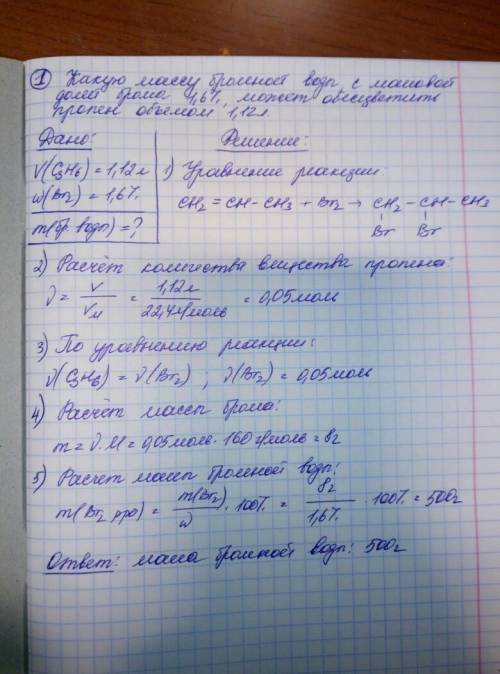 ① Какую массу бромной воды с массовой
долей брома 1,6%, может обесцветить
пропен объёмом 1,12л.
Дано:
V(C₃H₆) = 1,12л
ω(Br₂) = 1,6%
m(бр. воды) = ?
Решение:
1) Уравнение реакции
CH₂ = CH - CH₃ + Br₂ → CH₂ - CH - CH₃
Br Br
2) Расчёт количества вещества пропена:
ν = V/Vм = 1,12л/22,4л/моль = 0,05моль
3) По уравнению реакции:
ν(C₃H₆) = ν(Br₂) ; ν(Br₂) = 0,05моль
4) Расчёт массы брома:
m = ν·M = 0,05моль · 160г/моль = 8г
5) Расчет массы бромной воды:
m(Br₂ р-ра) = m(Br₂)/ω · 100% = 8г/1,6% · 100% = 500г
Ответ: масса бромной воды: 500г